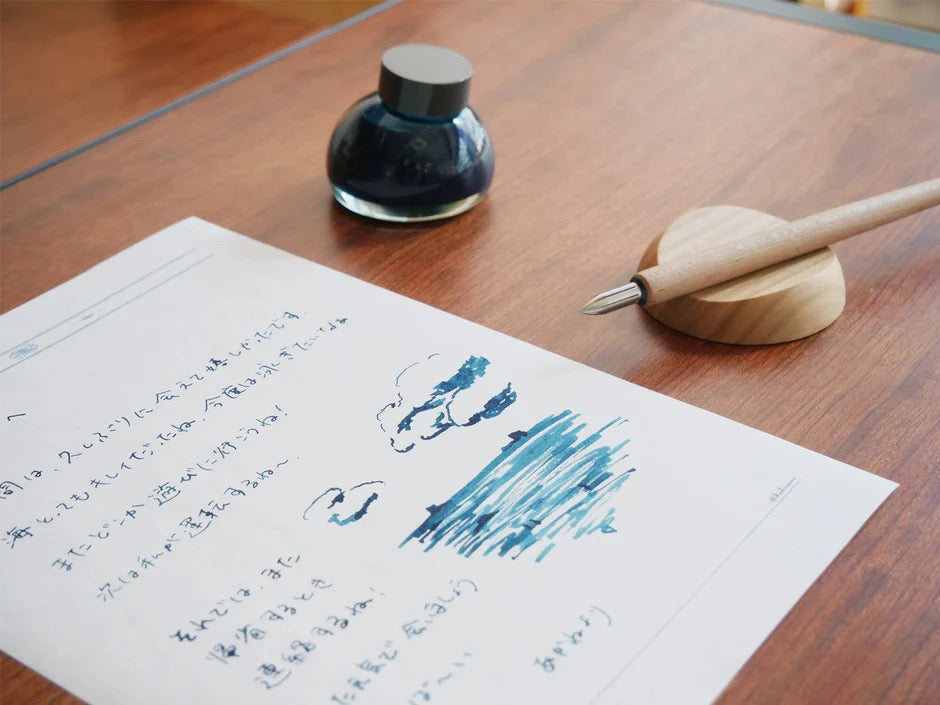 へ
間は、久しぶりに会えて嬉しかったです。
海とってもキレイだったね。今度は泳ぎたいよね
またどこか遊びに行こうね!
次は私が運転するね〜。
それでは、また
帰省するとき
連絡するね!
た元気で会いましょう
ば〜い
あかねより